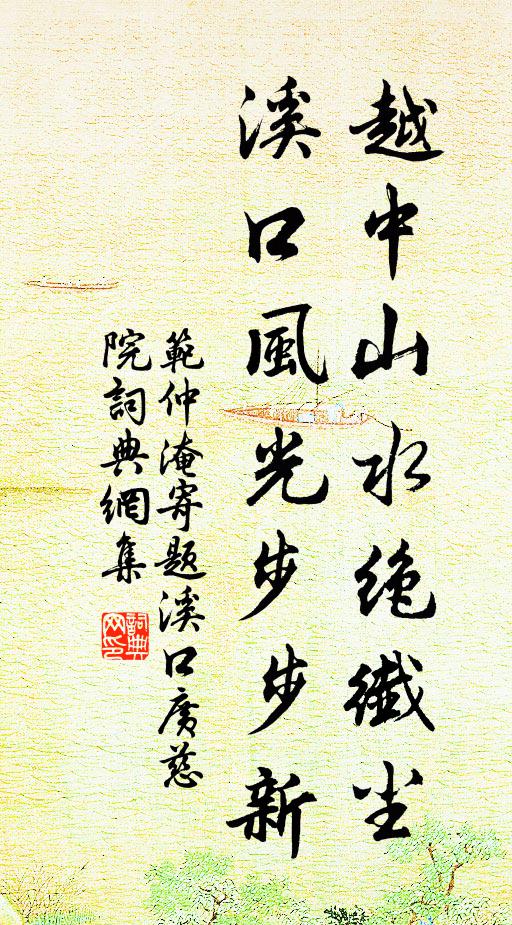 越中山水绝纖尘
溪口風光步步新
範仲淹寄题溪口廣慈
院詞典網集
詞典
网印